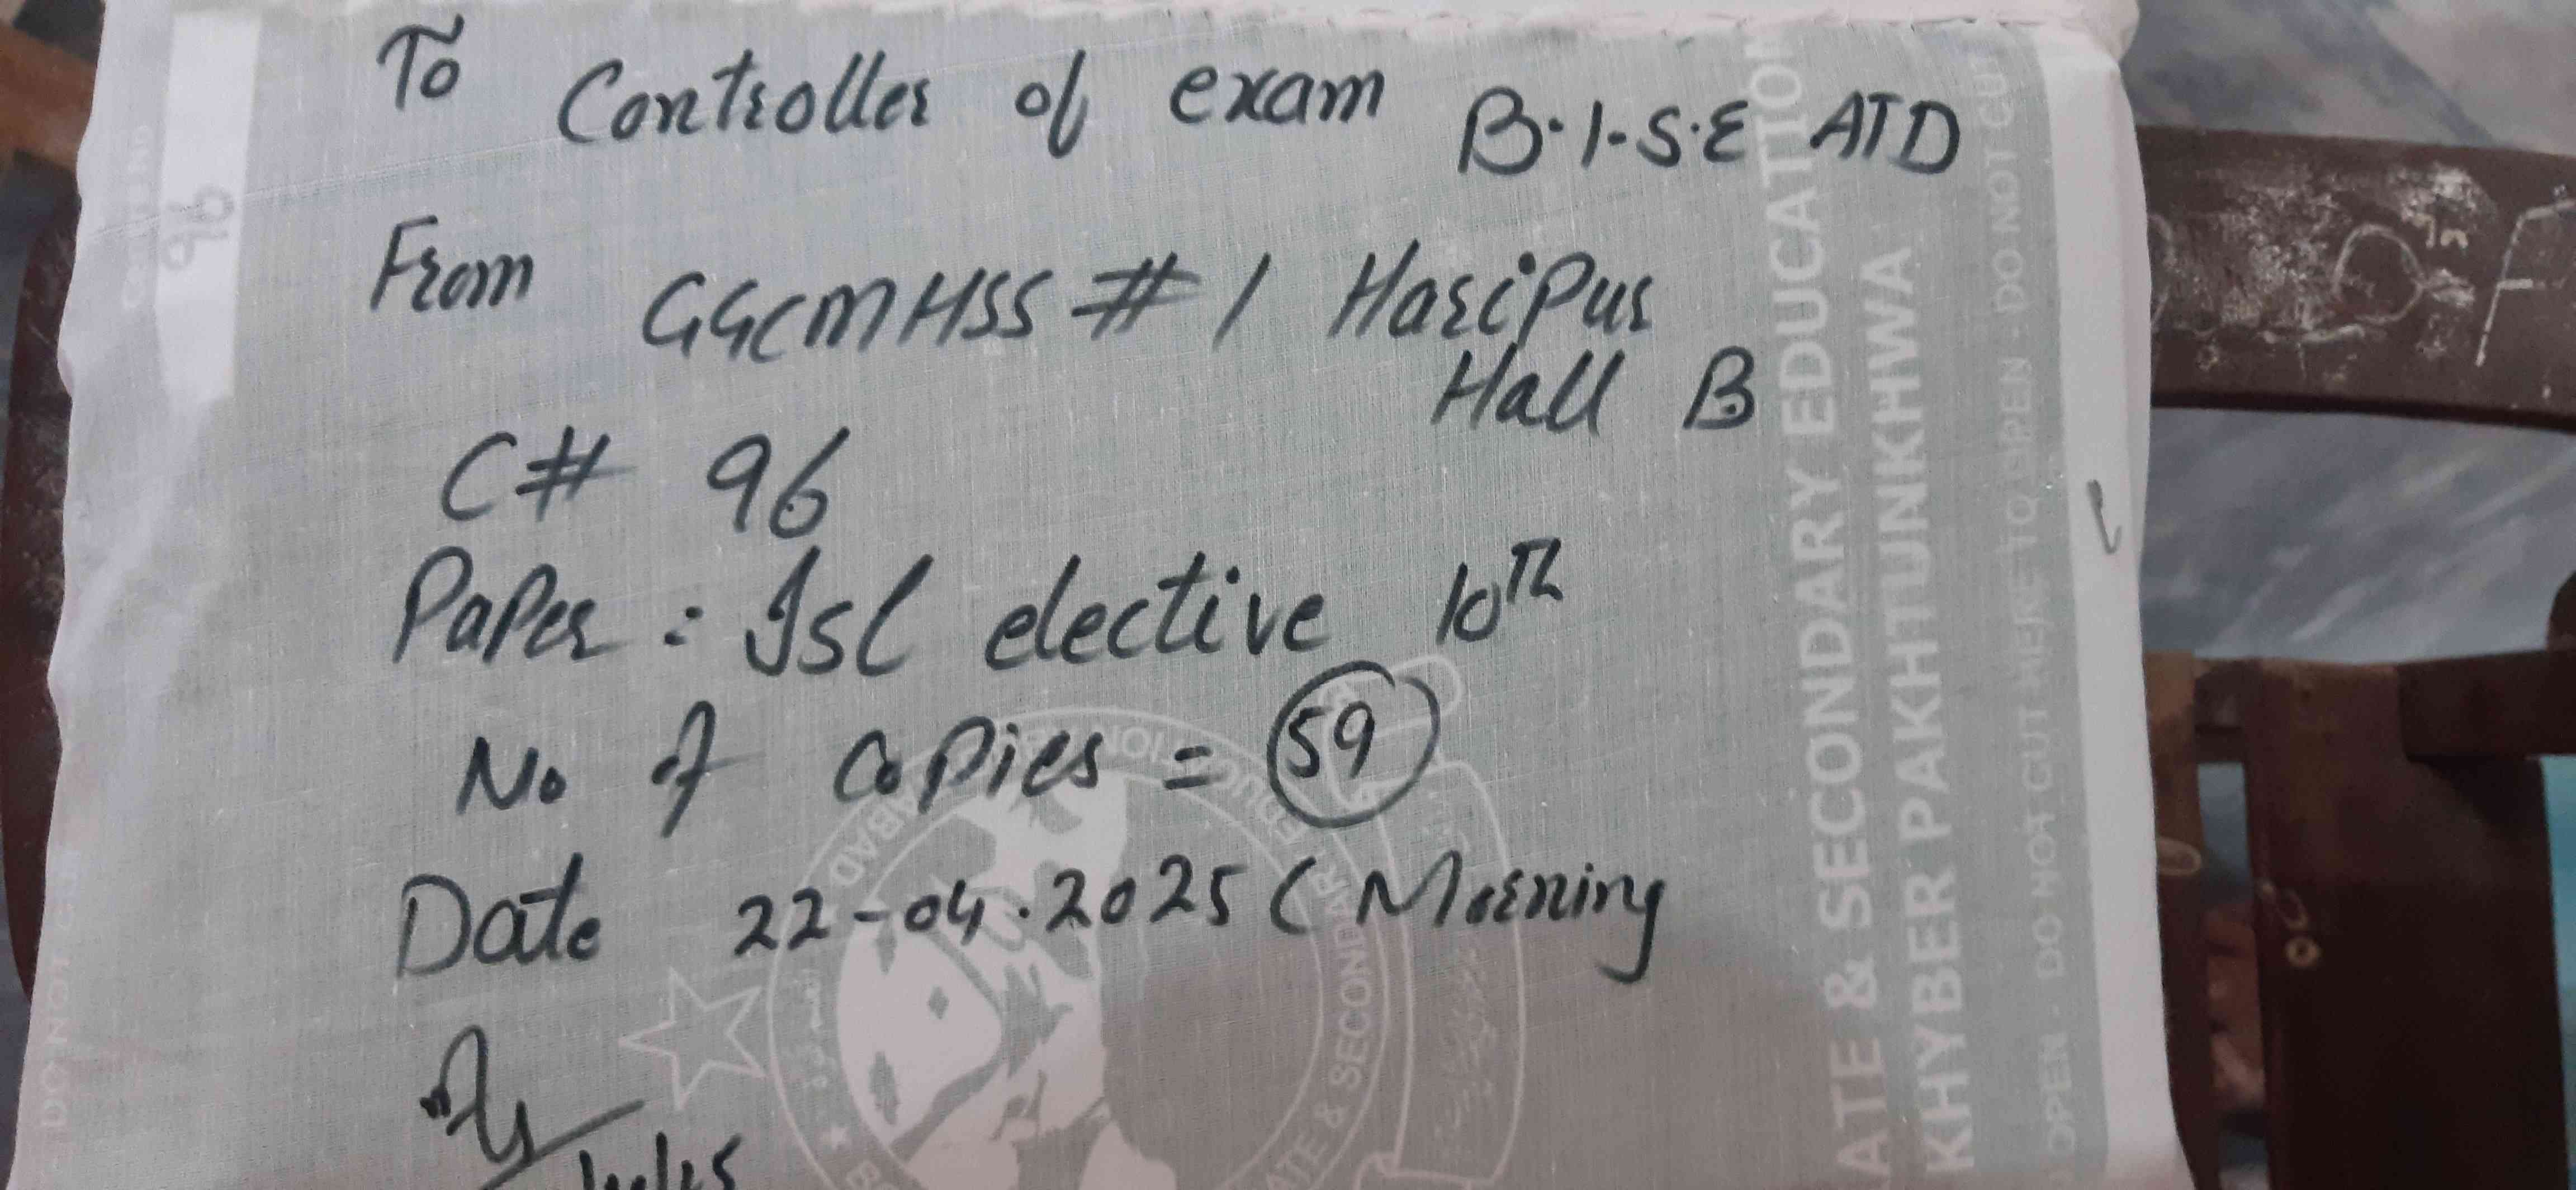 To Controller of exam B.I.S.E ATD
From GGCMHSS # 1 Haripur
Hall B
C# 96
Paper : Isl elective 10th
No of copies = 59
Date 22-04.2025 (Morning
96
DO NOT CUT
SECONDARY EDUCATION
KHYBER PAKHTUNKHWA
OPEN - DO NOT CUT HERE TO OPEN - DO NOT CUT